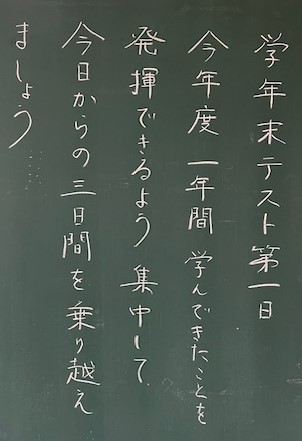 学年末テスト第一日
今年度 一年間 学んできたことを
発揮できるよう 集中して
今日からの三日間を乗り越え
ましょう